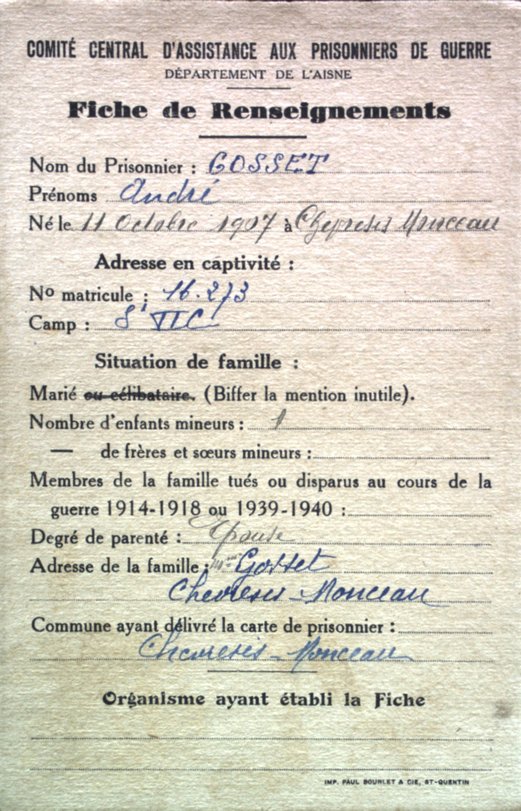 COMITÉ CENTRAL D'ASSISTANCE AUX PRISONNIERS DE GUERRE
DÉPARTEMENT DE L'AISNE
Fiche de Renseignements
Nom du Prisonnier : GOSSET
Prénoms André
Né le 11 Octobre 1907 à Monceau
Adresse en captivité :
No matricule : 16.273
Camp :
Situation de famille :
Marié ou célibataire. (Biffer la mention inutile).
Nombre d'enfants mineurs : 1
— de frères et sœurs mineurs :
Membres de la famille tués ou disparus au cours de la
guerre 1914-1918 ou 1939-1940 :
Degré de parenté : Epouse
Adresse de la famille : Mme Gosset
Chevresis-Monceau
Commune ayant délivré la carte de prisonnier :
Chevresis-Monceau
Organisme ayant établi la Fiche
IMP. PAUL BOURLET & CIE, ST-QUENTIN